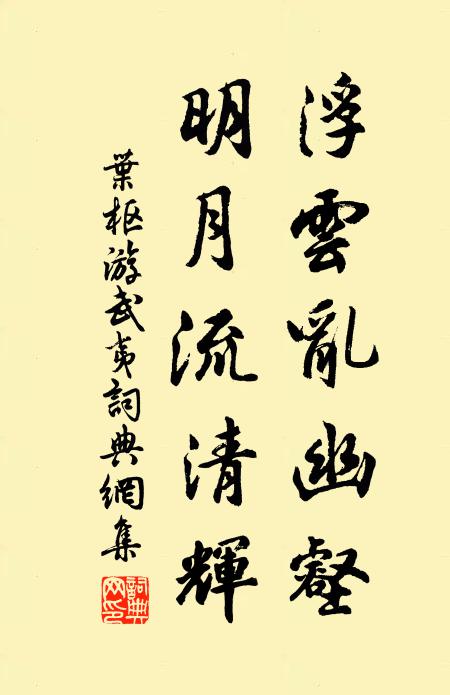 浮雲亂幽壑
明月流清輝
葉枢游武夷詞典網集
詞典網印